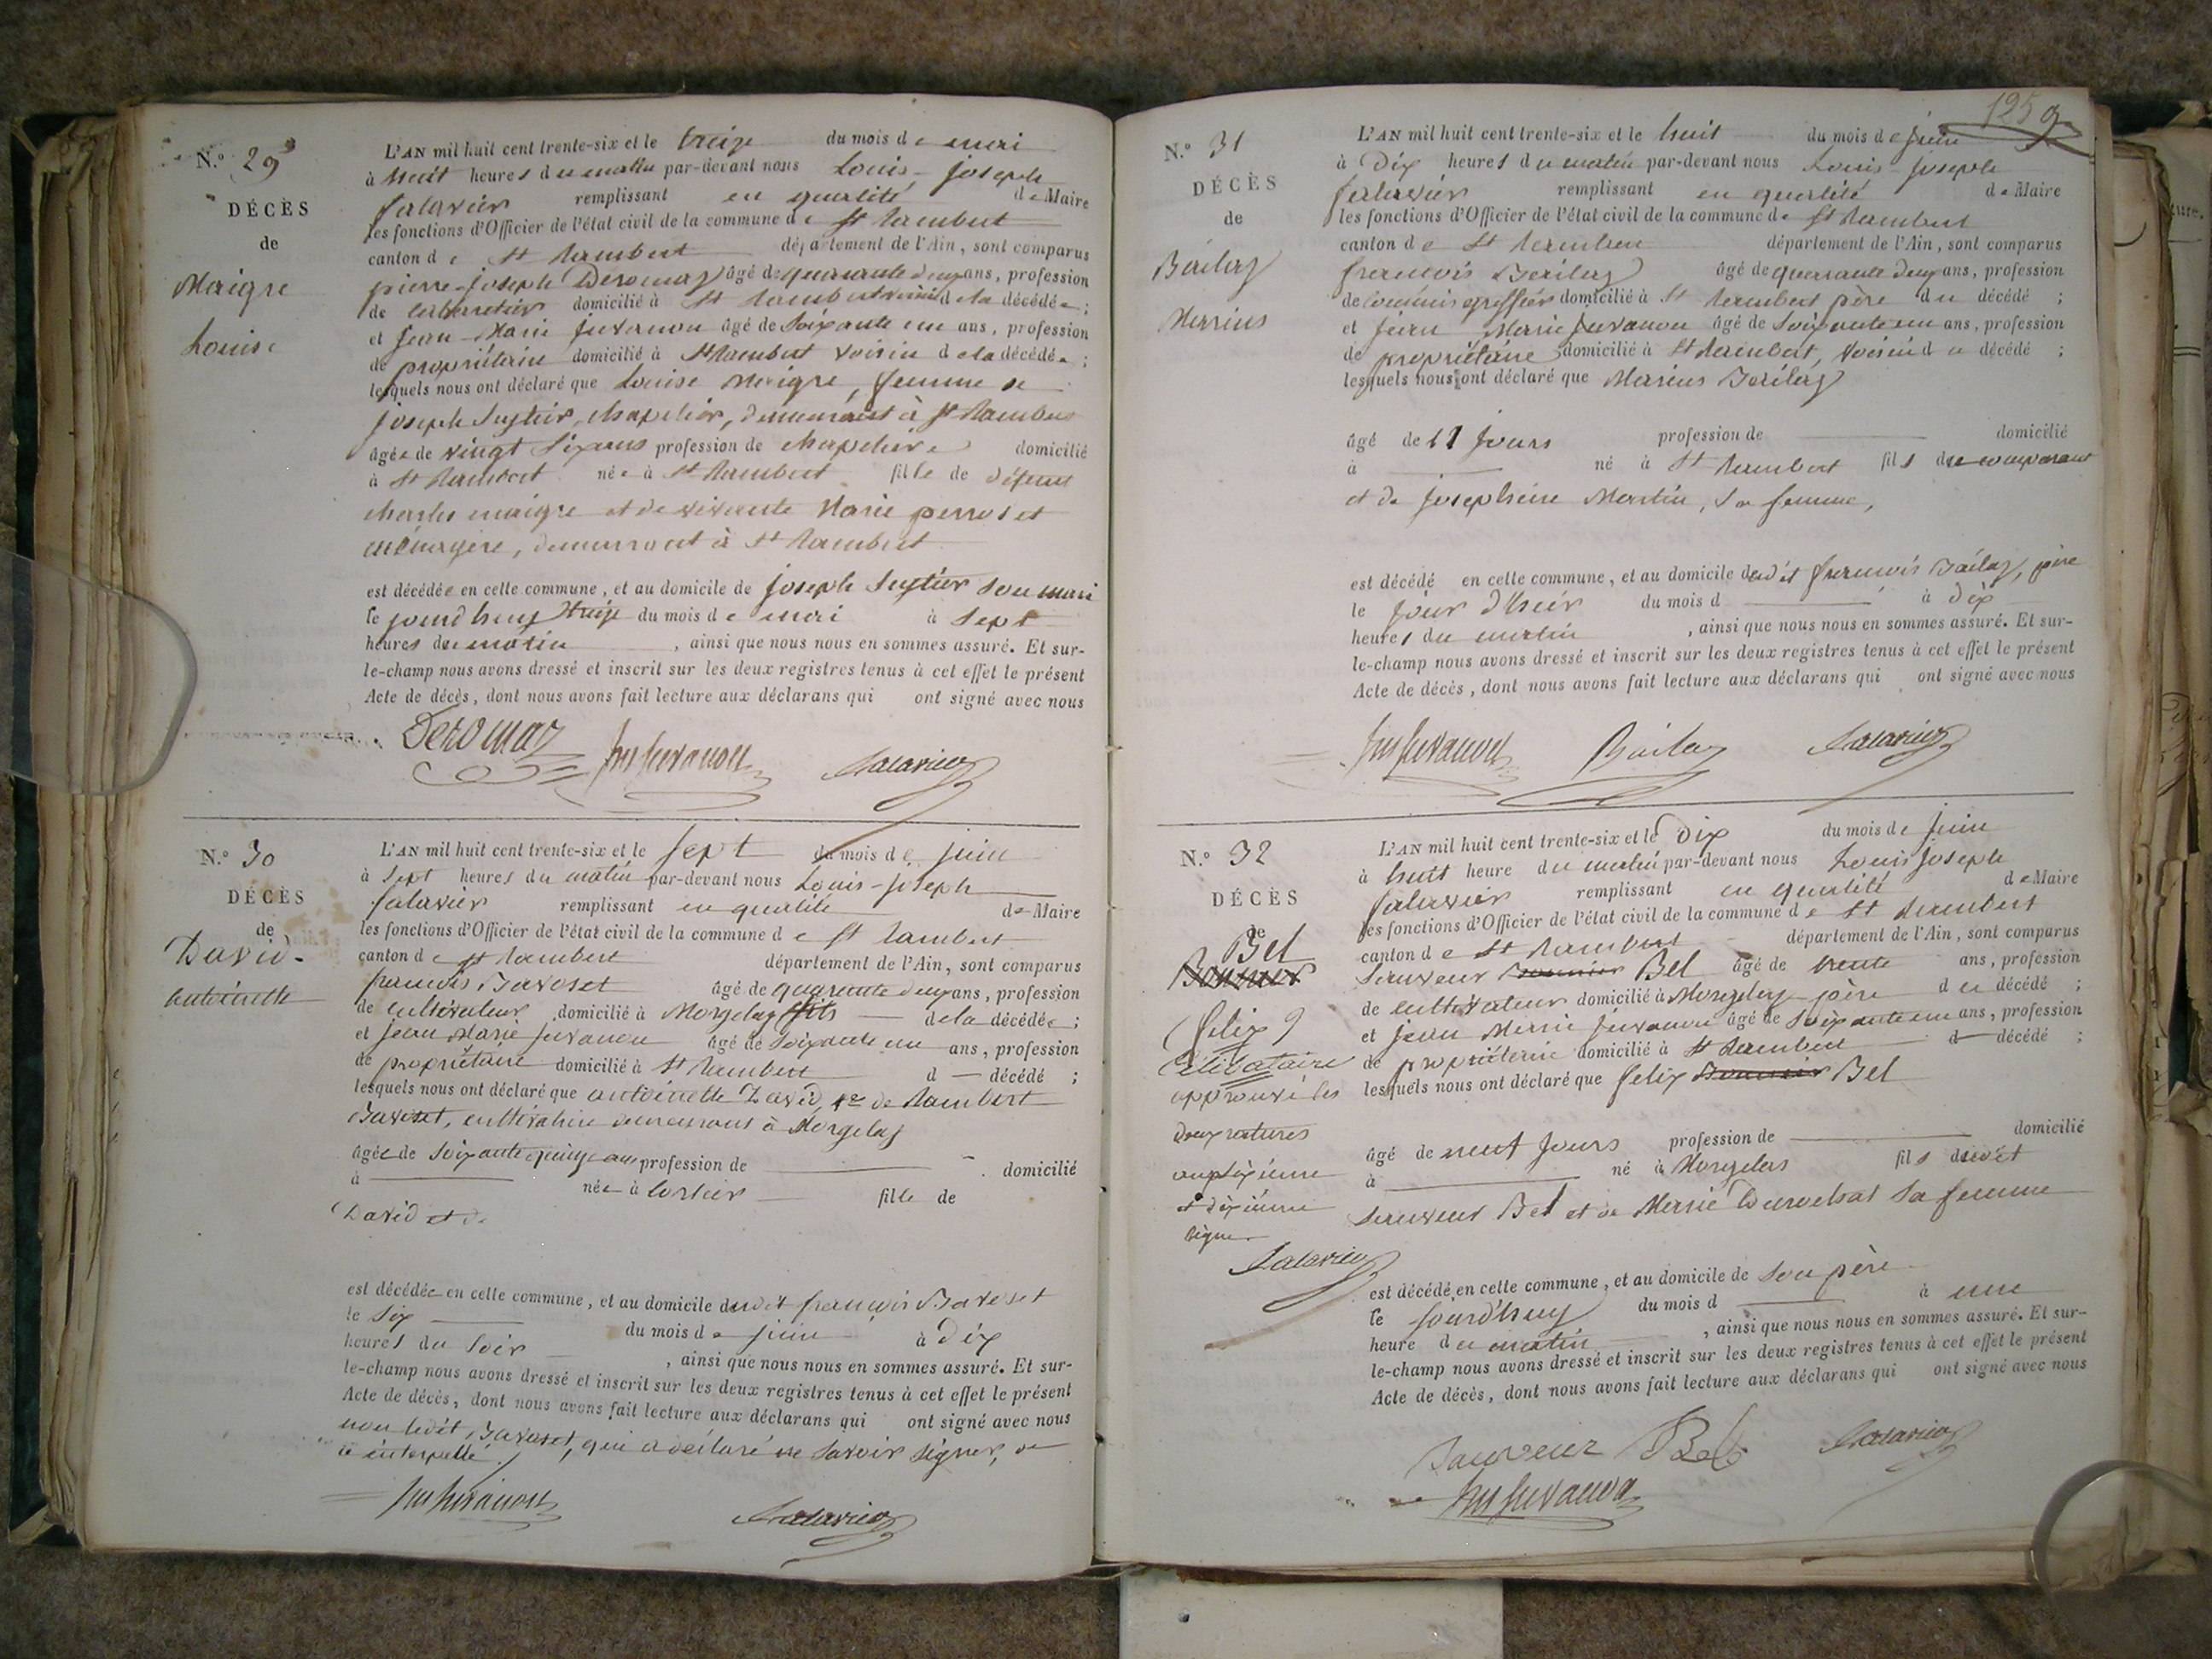 N.º 29
DÉCÈS
de
Maigre
Louise
L'AN mil huit cent trente-six et le treize du mois de mai
à huit heures du matin par-devant nous Louis-Joseph
Salavier remplissant en qualité de Maire
les fonctions d'Officier de l'état civil de la commune de St Rambert
canton de St Rambert département de l'Ain, sont comparus
pierre-Joseph Deromaz âgé de quarante deux ans, profession
de cabaretier domicilié à St Rambert voisin de la décédée ;
et Jean-Marie Juvanon âgé de soixante un ans, profession
de propriétaire domicilié à St Rambert voisin de la décédée ;
lesquels nous ont déclaré que Louise Maigre, femme de
joseph chapelier, demeurant à St Rambert
âgée de vingt six ans profession de chapelière domicilié
à St Rambert née à St Rambert fille de défunt
Charles maigre et de vivante Marie perroset
ménagère, demeurant à St Rambert
est décédée en cette commune, et au domicile de joseph son mari
le jourd'huy treize du mois de mai à Sept
heures du matin , ainsi que nous nous en sommes assuré. Et sur-
le-champ nous avons dressé et inscrit sur les deux registres tenus à cet effet le présent
Acte de décès, dont nous avons fait lecture aux déclarans qui ont signé avec nous
Deromaz Juvanon Salavier
N.º 30
DÉCÈS
de
David-
antoinette
L'AN mil huit cent trente-six et le sept du mois de juin
à sept heures du matin par-devant nous Louis-Joseph
Salavier remplissant en qualité de Maire
les fonctions d'Officier de l'état civil de la commune de St Rambert
canton de St Rambert département de l'Ain, sont comparus
francois Savoset âgé de quarante deux ans, profession
de cultivateur domicilié à Morgelas fils de la décédée ;
et Jean Marie Juvanon âgé de soixante un ans, profession
de propriétaire domicilié à St Rambert d — décédé ;
lesquels nous ont déclaré que antoinette David, ve de Rambert
Savoset, cultivatrice demeurant à Morgelas
âgée de soixante quinze ans profession de — domicilié
à — née à fille de
David et de
est décédée en cette commune, et au domicile dudit françois Savoset
le six du mois de juin à dix
heures du soir , ainsi que nous nous en sommes assuré. Et sur-
le-champ nous avons dressé et inscrit sur les deux registres tenus à cet effet le présent
Acte de décès, dont nous avons fait lecture aux déclarans qui ont signé avec nous
non ledit Savoset, qui a déclaré ne savoir signer, de
ce interpellé.
Juvanon Salavier
125
N.º 31
DÉCÈS
de
Bailaz
Marius
L'AN mil huit cent trente-six et le huit du mois de juin
à Dix heures du matin par-devant nous Louis-Joseph
Salavier remplissant en qualité de Maire
les fonctions d'Officier de l'état civil de la commune de St Rambert
canton de St Rambert département de l'Ain, sont comparus
francois Bailaz âgé de quarante deux ans, profession
de commis greffier domicilié à St Rambert père du décédé ;
et Jean Marie Juvanon âgé de soixante un ans, profession
de propriétaire domicilié à St Rambert, voisin du décédé ;
lesquels nous ont déclaré que Marius Bailaz
âgé de 11 jours profession de — domicilié
à — né à St Rambert fils du comparant
et de Josephine Martin, sa femme,
est décédé en cette commune, et au domicile dudit francois Bailaz, père
le jour d'hier du mois d — à dix
heures du matin , ainsi que nous nous en sommes assuré. Et sur-
le-champ nous avons dressé et inscrit sur les deux registres tenus à cet effet le présent
Acte de décès, dont nous avons fait lecture aux déclarans qui ont signé avec nous
Juvanon Bailaz Salavier
N.º 32
DÉCÈS
de
Bel
felix
approuvé les
deux ratures
au sixième
et dixième
ligne
Salavier
L'AN mil huit cent trente-six et le Dix du mois de juin
à huit heure du matin par-devant nous Louis Joseph
Salavier remplissant en qualité de Maire
les fonctions d'Officier de l'état civil de la commune de St Rambert
canton de St Rambert département de l'Ain, sont comparus
Sauveur Bel âgé de trente ans, profession
de cultivateur domicilié à Morgelas père du décédé ;
et Jean Marie Juvanon âgé de soixante un ans, profession
de propriétaire domicilié à St Rambert d — décédé ;
lesquels nous ont déclaré que felix Bel
âgé de neuf jours profession de — domicilié
à — né à Morgelas fils dudit
Sauveur Bel et de Marie sa femme
est décédé en cette commune, et au domicile de son père
le jourd'huy du mois d — à une
heure du matin , ainsi que nous nous en sommes assuré. Et sur-
le-champ nous avons dressé et inscrit sur les deux registres tenus à cet effet le présent
Acte de décès, dont nous avons fait lecture aux déclarans qui ont signé avec nous
Sauveur Bel Salavier
Juvanon